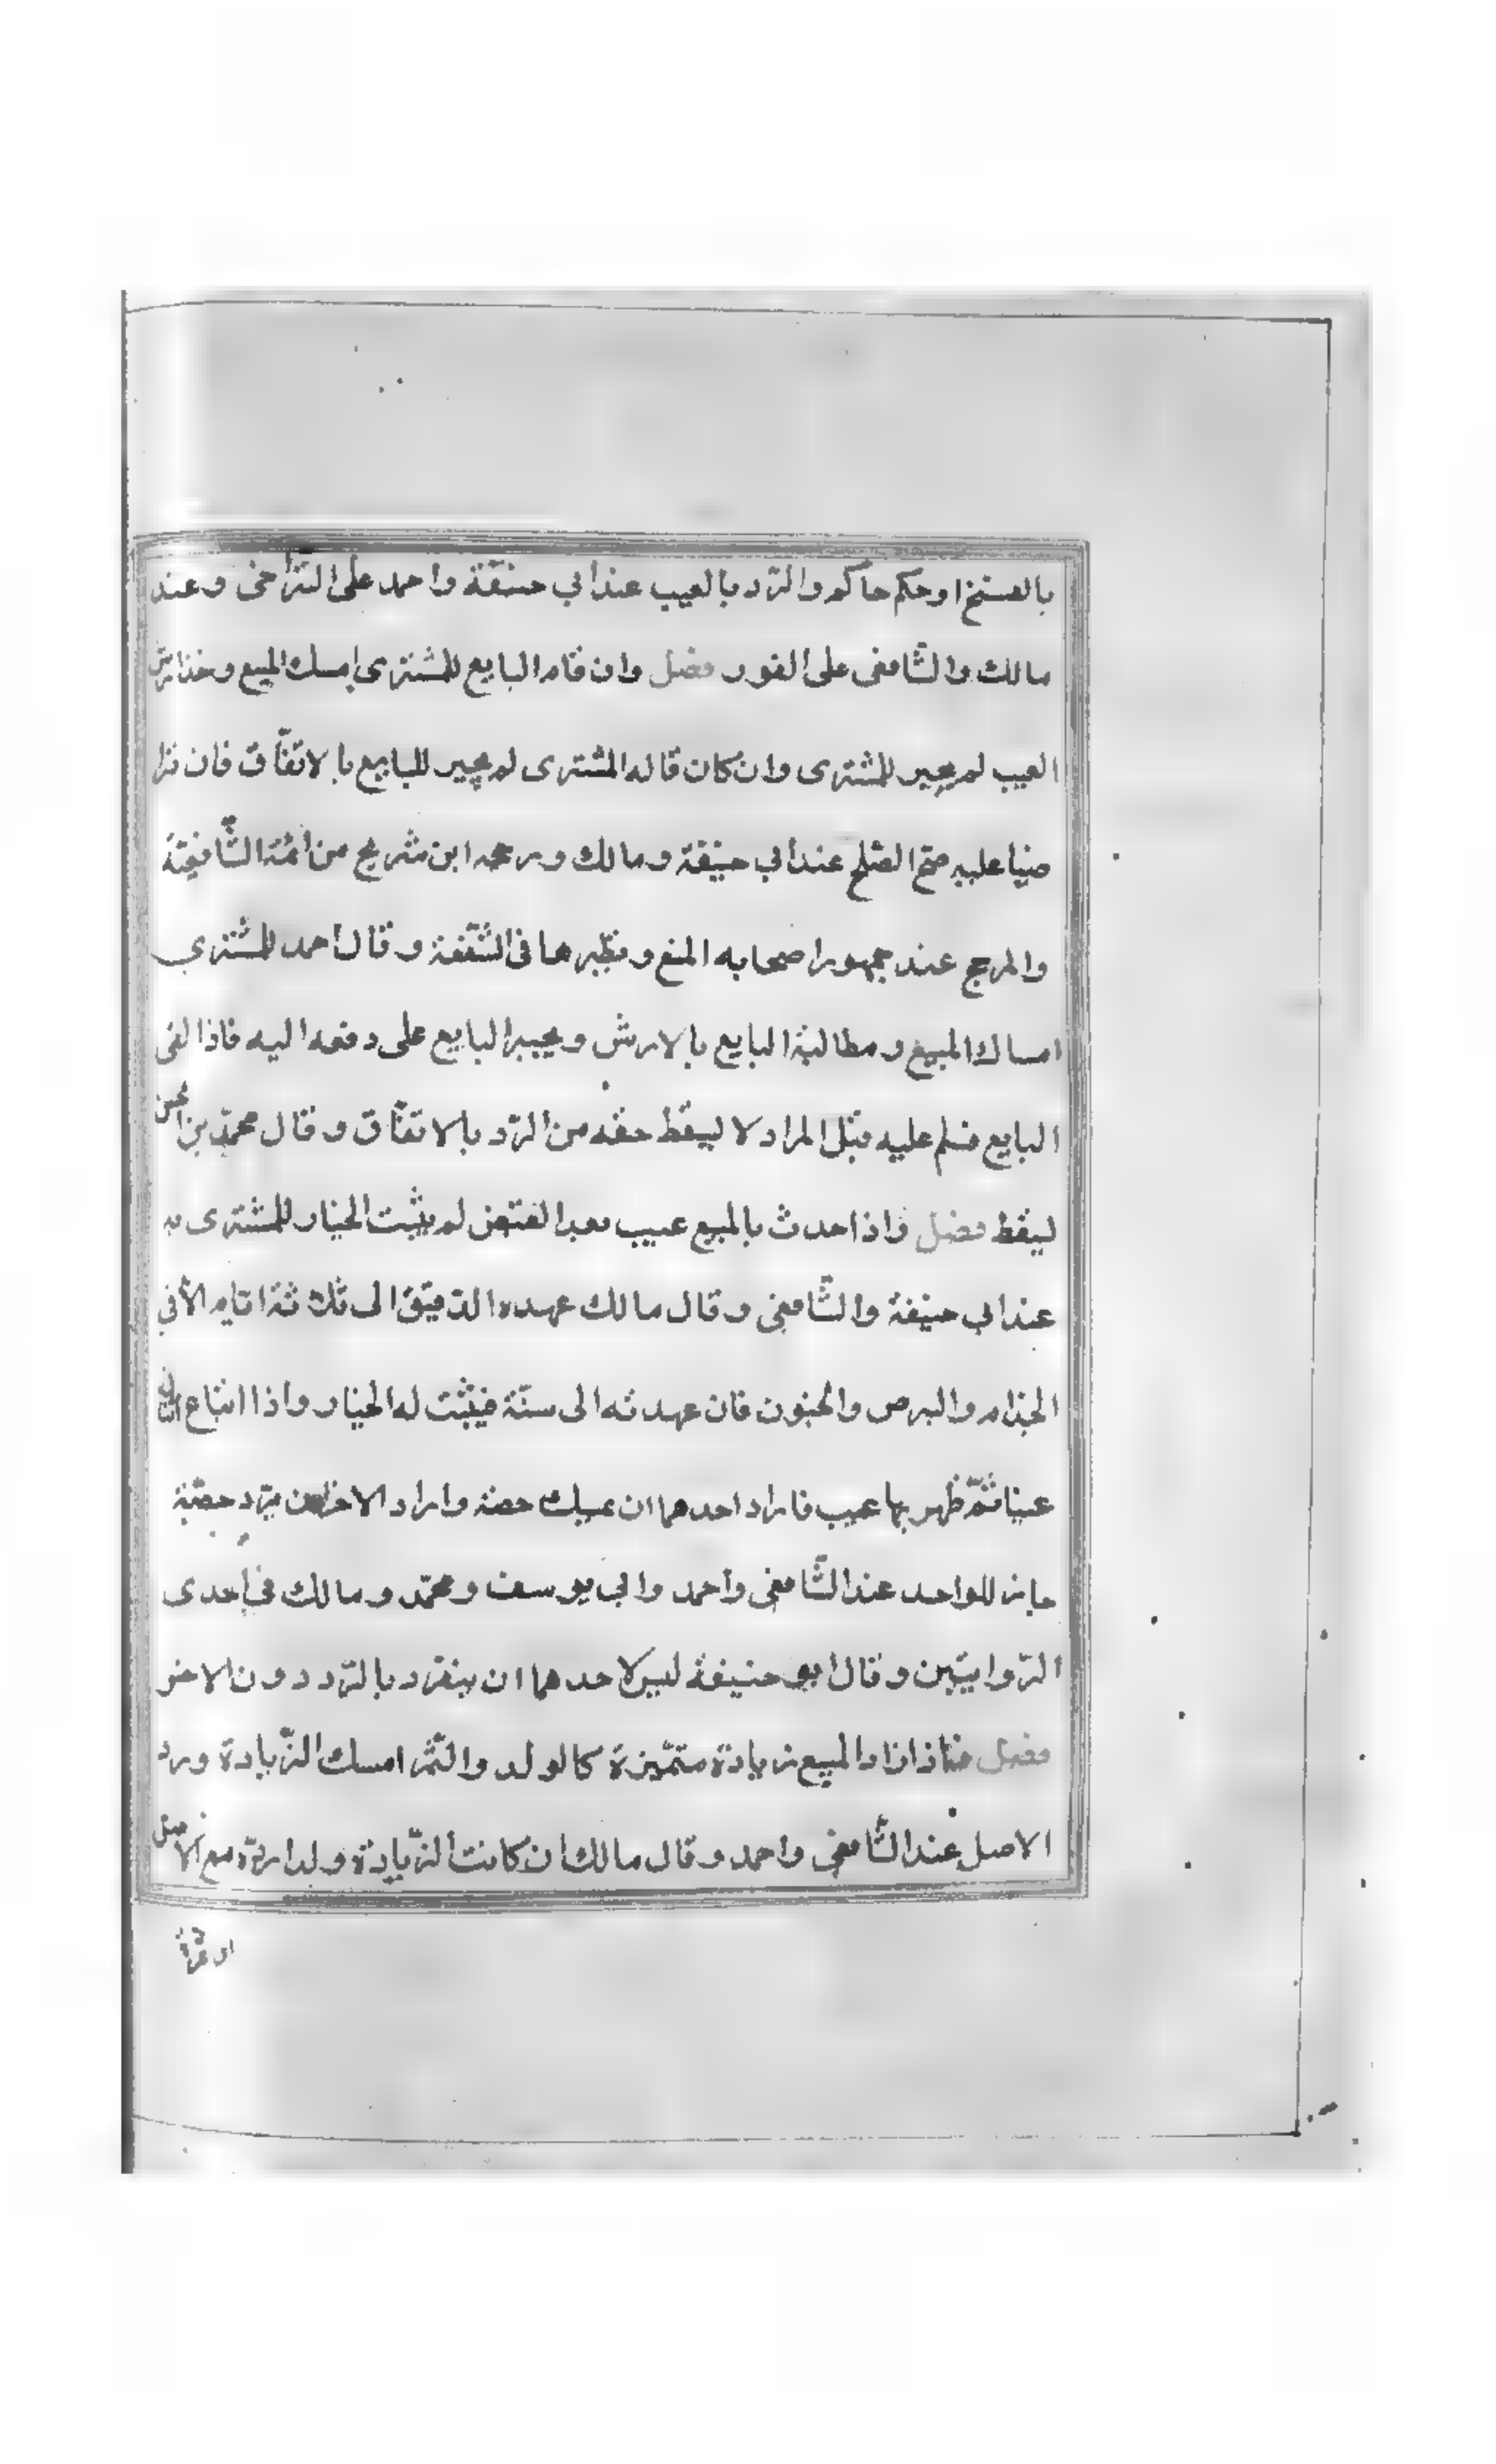 بالفسخ او حكم حاكم والرّد بالعيب عند أبي حنيفة واحمد على التراخى وعند
مالك والشّافعى على الفور فصل وان قام البايع للمشترى امسك المبيع وخذ ارش
العيب لم يجبر المشترى وان كان قاله المشترى لم يجبر للبايع بالاتفّاق فان ترا
ضيا عليه صحّ الصّلح عند أبي حنيفة ومالك ورجحه ابن شريح من ائمّة الشّافعيّة
والمرجح عند جمهور اصحابه المنع ونظيرها فى الشّفعة وقال احمد للمشتري
امساك المبيع ومطالبة البايع بالارش ويجبر البايع على دفعه اليه فاذا لقى
البايع فسلم عليه قبل المراد لا يسقط حقه من الرّد بالاتفّاق وقال محمّد بن الحسن
يسقط فصل واذا حدث بالمبيع عيب بعد القبض لم يثبت الخيار للمشترى به
عند ابي حنيفة والشّافعى وقال مالك عهده الرقيق الى ثلاثة ايام الا فى
الجذام والبرص والجنون فان عهدته الى سنّة فيثبت له الخيار واذا ابتاع اثنان
عينا ثمّ ظهر بها عيب فاراد احدهما ان يمسك حصته واراد الاخر ان يرّد حصّته
جاز للواحد عند الشّافعى واحمد وابي يوسف ومحمّد ومالك في إحدى
الرّوايتين وقال ابو حنيفة ليس لاحدهما ان ينفرد بالرّد دون الاخر
فصل فاذا زاد المبيع زيادة متمّيزة كالولد والثمّر امسك الزّيادة ورد
الاصل عند الشّافعى واحمد وقال مالك ان كانت الزّيادة ولدا ردّه مع الاصل
او ثمرة